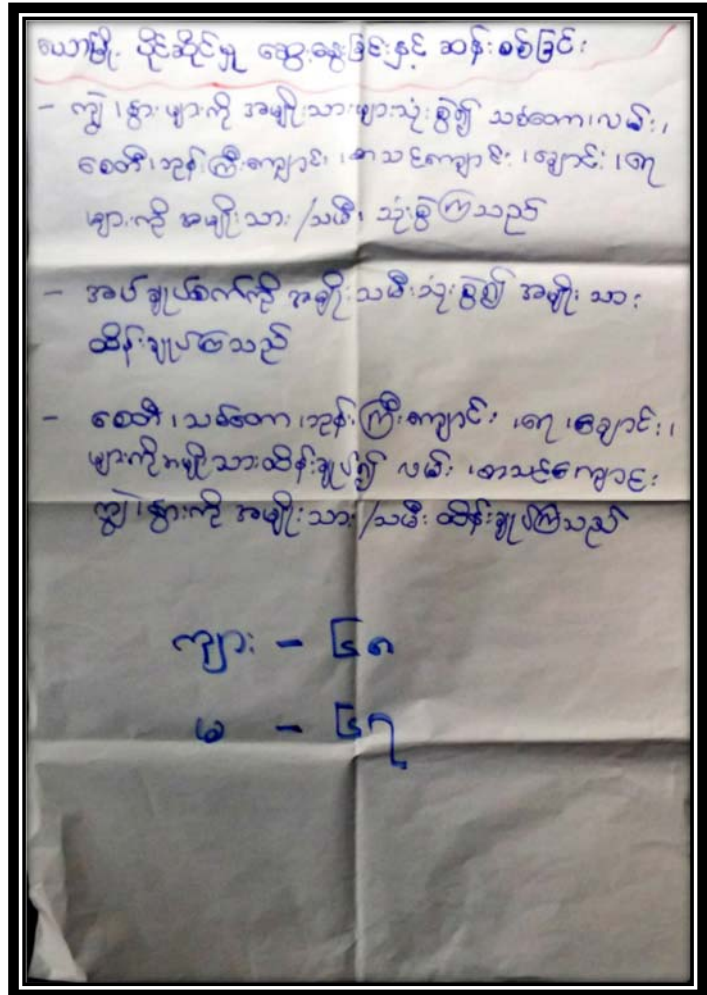 ယောက်ျို့ ပိုင်ဆိုင်မှု ဆွေးနွေးခြင်းနှင့် ဆန်းစစ်ခြင်း
- ကျွဲ ၊ နွား များကို အမျိုးသားများသုံးစွဲ၍ သစ်တော ၊ လမ်း ၊
စေတီ ၊ ဘုန်းကြီးကျောင်း ၊ စာသင်ကျောင်း ၊ ချောင်း ၊ ရေ
များကို အမျိုးသား / သမီး သုံးစွဲကြသည်
- အပ်ချုပ်စက်ကို အမျိုးသမီးသုံးစွဲ၍ အမျိုးသား
ထိန်းချုပ်ကြသည်
- စေတီ ၊ သစ်တော ၊ ဘုန်းကြီးကျောင်း ၊ ရေ ၊ ချောင်း ၊
များကိုအမျိုးသားထိန်းချုပ်၍ လမ်း ၊ စာသင်ကျောင်း
ကျွဲ ၊ နွားကို အမျိုးသား / သမီး ထိန်းချုပ်ကြသည်
ကျား - ၄၈
မ - ၄၇